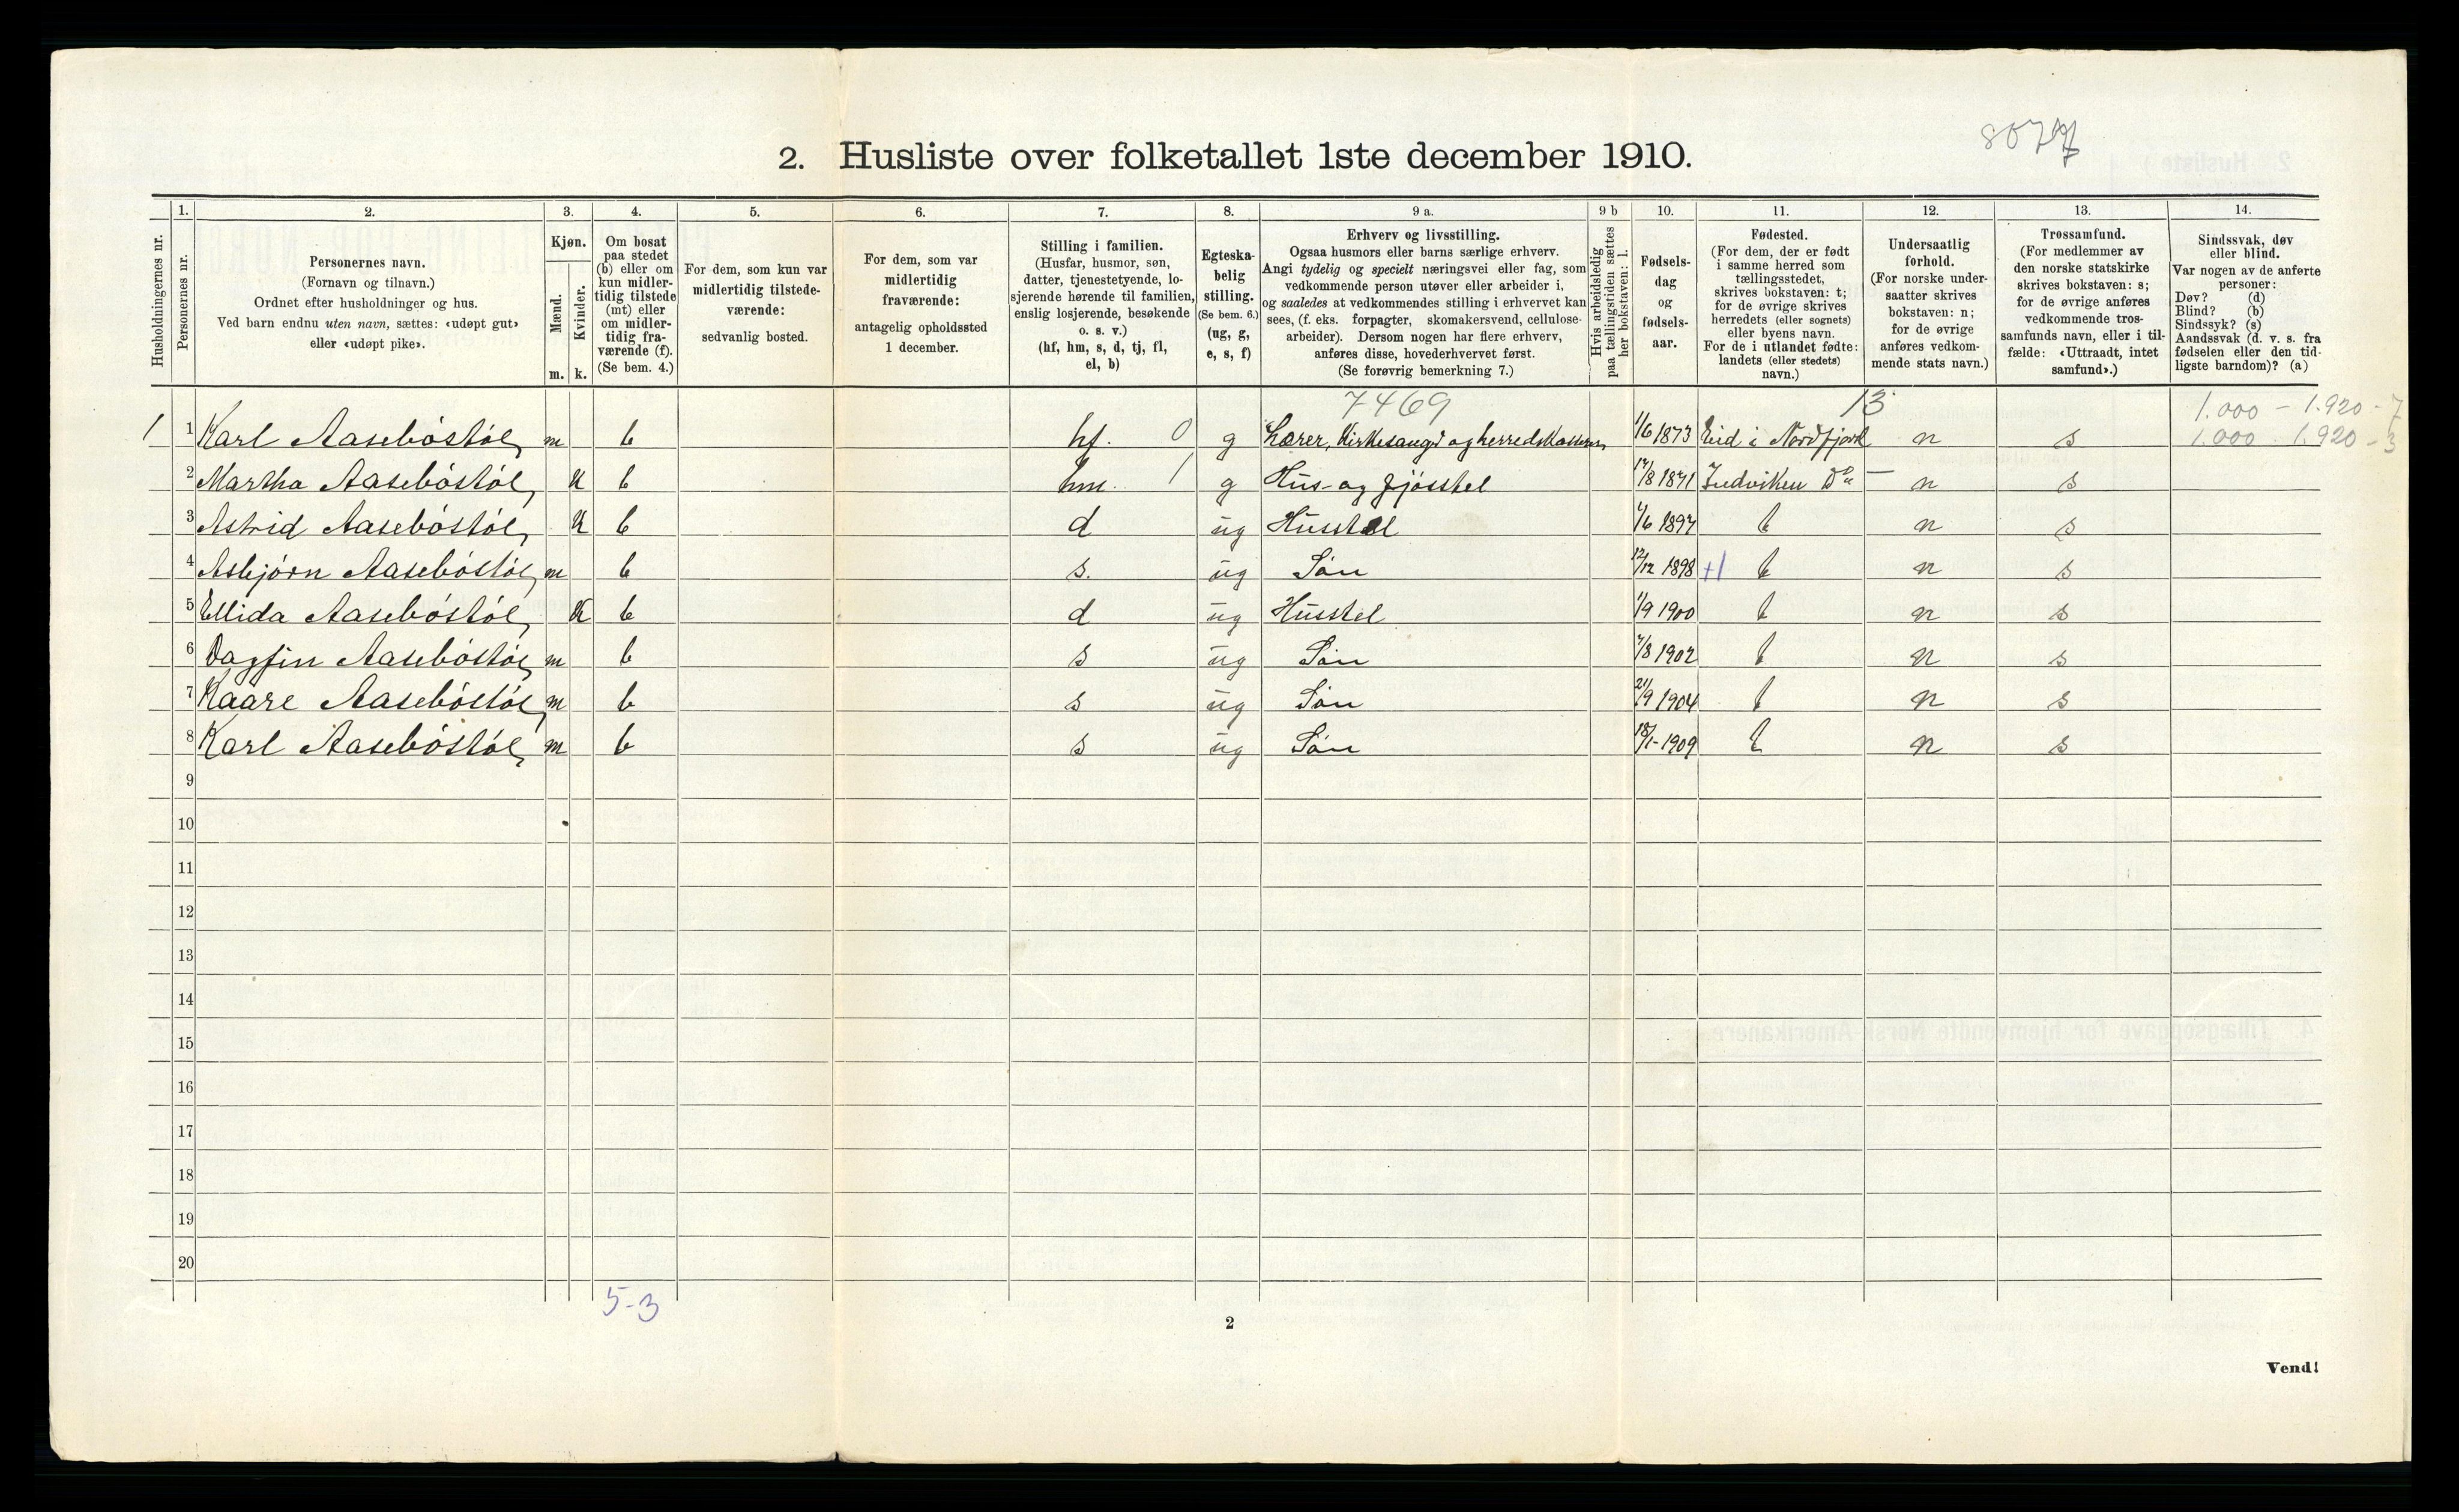 8077
2. Husliste over folketallet 1ste december 1910.
Husholdningernes nr.
1.
Personernes nr.
2.
Personernes navn.
(Fornavn og tilnavn.)
Ordnet efter husholdninger og hus.
Ved barn endnu uten navn, sættes: «udøpt gut»
eller «udøpt pike».
3.
Kjøn.
Mænd.
Kvinder.
m. k.
4.
Om bosat
paa stedet
(b) eller om
kun midler-
tidig tilstede
(mt) eller
om midler-
tidig fra-
værende (f).
(Se bem. 4.)
5.
For dem, som kun var
midlertidig tilstede-
værende:
sedvanlig bosted.
6.
For dem, som var
midlertidig
fraværende:
antagelig opholdssted
1 december.
7.
Stilling i familien.
(Husfar, husmor, søn,
datter, tjenestetyende, lo-
sjerende hørende til familien,
enslig losjerende, besøkende
o. s. v.)
(hf, hm, s, d, tj, fl,
el, b)
8.
Egteska-
belig
stilling.
(Se bem. 6.)
(ug, g,
e, s, f)
9 a.
Erhverv og livsstilling.
Ogsaa husmors eller barns særlige erhverv.
Angi tydelig og specielt næringsvei eller fag, som
vedkommende person utøver eller arbeider i,
og saaledes at vedkommendes stilling i erhvervet kan
sees, (f. eks. forpagter, skomakersvend, cellulose-
arbeider). Dersom nogen har flere erhverv,
anføres disse, hovederhvervet først.
(Se forøvrig bemerkning 7.)
9 b
Hvis arbeidsledig
paa tællingstiden sættes
her bokstaven: l.
10.
Fødsels-
dag
og
fødsels-
aar.
11.
Fødested.
(For dem, der er født
i samme herred som
tællingsstedet,
skrives bokstaven: t;
for de øvrige skrives
herredets (eller sognets)
eller byens navn.
For de i utlandet fødte:
landets (eller stedets)
navn.)
12.
Undersaatlig
forhold.
(For norske under-
saatter skrives
bokstaven: n;
for de øvrige
anføres vedkom-
mende stats navn.)
13.
Trossamfund.
(For medlemmer av
den norske statskirke
skrives bokstaven: s;
for de øvrige anføres
vedkommende tros-
samfunds navn, eller i til-
fælde: «Uttraadt, intet
samfund».)
14.
Sindssvak, døv
eller blind.
Var nogen av de anførte
personer:
Døv? (d)
Blind? (b)
Sindssyk? (s)
Aandssvak (d. v. s. fra
fødselen eller den tid-
ligste barndom)? (a)
7469 13 1.000 - 1.920 - 7
1 1 Karl Aasebóstól, m b hf. 0 g Lærer, Kirkesanger og herredskasserer, 1/6 1873 Eid i Nordfjord n s 1.000 - 1.920 - 3
2 Martha Aasebóstól, k b hm. 1 g Hus- og fjósstel 17/8 1871 Indviken Do — n s
3 Astrid Aasebóstól, k b d ug Husstel 4/6 1897 t n s
4 Asbjórn Aasebóstól, m b s. ug Són 12/12 1898 +1 t n s
5 Ellida Aasebóstól, k b d ug Husstel 1/9 1900 t n s
6 Dagfin Aasebóstól, m b s ug Són 7/8 1902 t n s
7 Kaare Aasebóstól, m b s ug Són 21/9 1904 t n s
8 Karl Aasebóstól, m b s ug Són 18/1-1909 t n s
9
10
11
12
13
14
15
16
17
18
19
20
5-3
2
Vend!